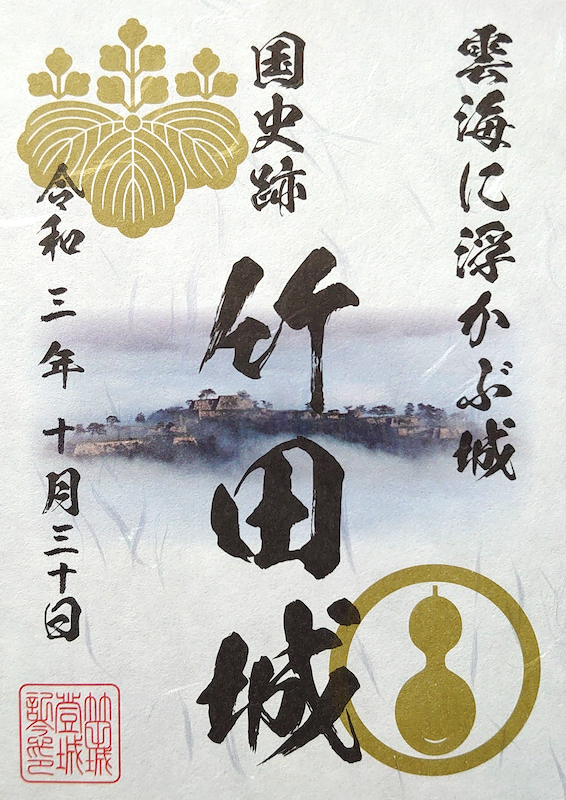 雲海に浮かぶ城
国史跡
竹田城
令和三年十月三十日
竹田城
登城
記念印